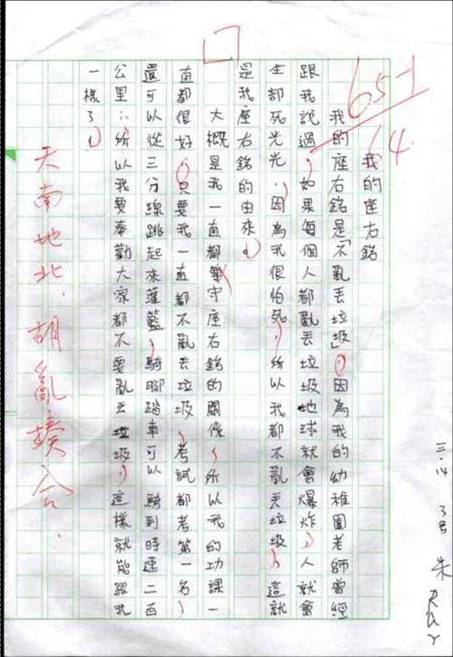 我的座右銘
我的座右銘是「不亂丟垃圾」,因為我的幼稚園老師曾經
跟我說過,如果每個人都亂丟垃圾地球就會爆炸,人就會
全部死光光,因為我很怕死,所以我都不亂丟垃圾,這就
是我座右銘的由來。
大概是我一直都遵守座右銘的關係,所以我的功課一
直都很好,只要我一直都不亂丟垃圾,考試都考第一名,
還可以從三分線跳起來灌籃,騎腳踏車可以騎到時速二百
公里,所以我要奉勸大家都不要亂丟垃圾,這樣就能跟我
一樣了。
65-1
64
天南地北,胡亂接合.
三.14
3号
朱